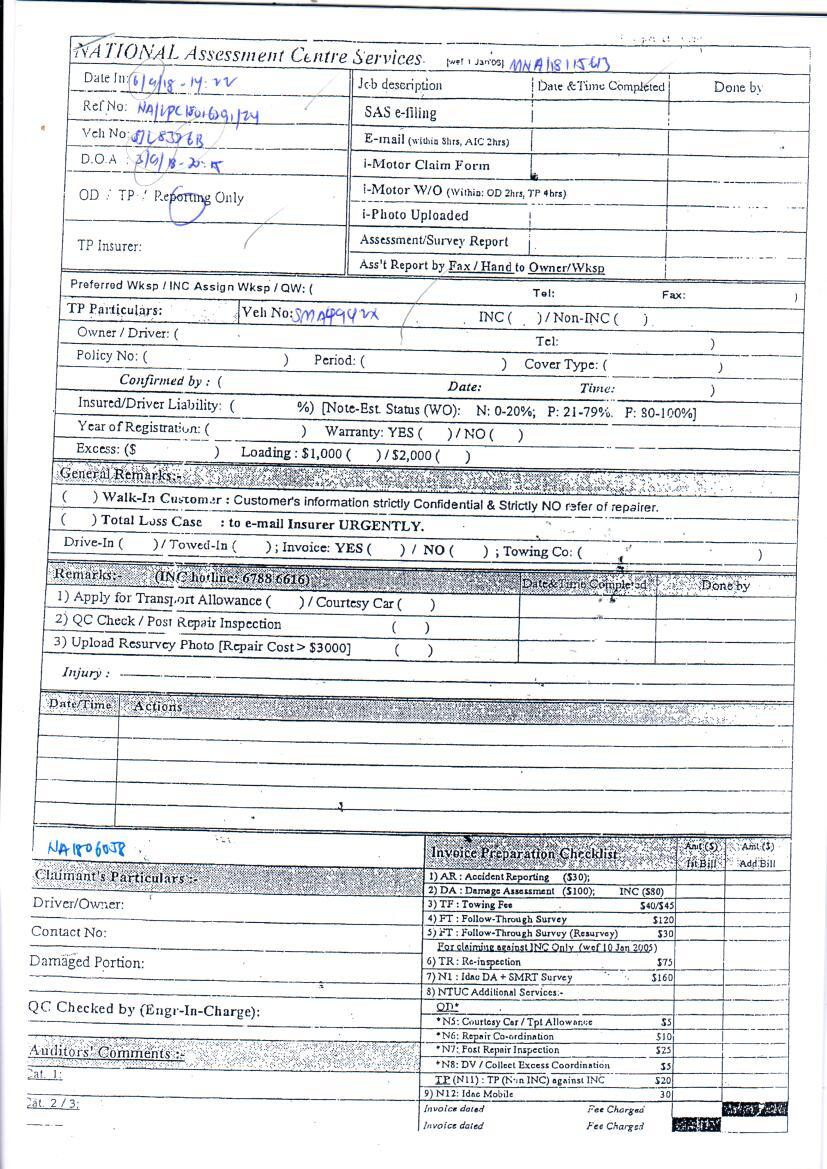 NATIONAL Assessment Centre Services. [wef 1 Jan'05]
Date In: 6/9/18 - 14:22
Job description
Date & Time Completed
Done by
Ref No:
SAS e-filing
Veh No:
E-mail (within 8hrs, AIC 2hrs)
D.O.A :
i-Motor Claim Form
OD / TP / Reporting Only
i-Motor W/O (Within: OD 2hrs, TP 4hrs)
i-Photo Uploaded
TP Insurer:
Assessment/Survey Report
Ass't Report by Fax / Hand to Owner/Wksp
Preferred Wksp / INC Assign Wksp / QW: ( Tel: Fax: )
TP Particulars: Veh No: SMA4942X INC ( ) / Non-INC ( )
Owner / Driver: ( Tel: )
Policy No: ( ) Period: ( ) Cover Type: ( )
Confirmed by : ( Date: Time: )
Insured/Driver Liability: ( %) [Note-Est. Status (WO): N: 0-20%; P: 21-79%. F: 80-100%]
Year of Registration: ( ) Warranty: YES ( ) / NO ( )
Excess: ($ ) Loading : $1,000 ( ) / $2,000 ( )
General Remarks:-
( ) Walk-In Customer : Customer's information strictly Confidential & Strictly NO refer of repairer.
( ) Total Loss Case : to e-mail Insurer URGENTLY.
Drive-In ( ) / Towed-In ( ) ; Invoice: YES ( ) / NO ( ) ; Towing Co: ( )
Remarks:- (INC hotline: 6788 6616)
Date&Time Completed
Done by
1) Apply for Transport Allowance ( ) / Courtesy Car ( )
2) QC Check / Post Repair Inspection ( )
3) Upload Resurvey Photo [Repair Cost > $3000] ( )
Injury :
Date/Time Actions
Invoice Preparation Checklist
Amt ($) 1st Bill
Amt ($) Add Bill
Claimant's Particulars :-
1) AR : Accident Reporting ($30);
2) DA : Damage Assessment ($100); INC ($80)
Driver/Owner:
3) TF : Towing Fee $40/$45
4) FT : Follow-Through Survey $120
Contact No:
5) FT : Follow-Through Survey (Resurvey) $30
For claiming against INC Only (wef 10 Jan 2005)
Damaged Portion:
6) TR : Re-inspection $75
7) N1 : Idac DA + SMRT Survey $160
8) NTUC Additional Services:-
QC Checked by (Engr-In-Charge):
OD*
*N5: Courtesy Car / Tpt Allowance $5
*N6: Repair Co-ordination $10
*N7: Post Repair Inspection $25
Auditors' Comments :-
*N8: DV / Collect Excess Coordination $5
Cat. 1:
TP (N11) : TP (Non INC) against INC $20
9) N12: Idac Mobile 30
Cat. 2 / 3:
Invoice dated Fee Charged
Invoice dated Fee Charged